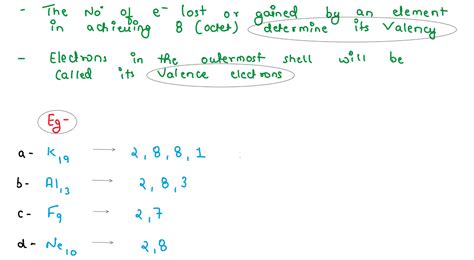 - The No of e⁻ lost or gained by an element
in achieving 8 (octet) determine its Valency
- Electrons in the outermost shell will be
called its Valence electrons
Eg-
a- K₁₉ → 2, 8, 8, 1
b- Al₁₃ → 2, 8, 3
c- F₉ → 2, 7
d- Ne₁₀ → 2, 8